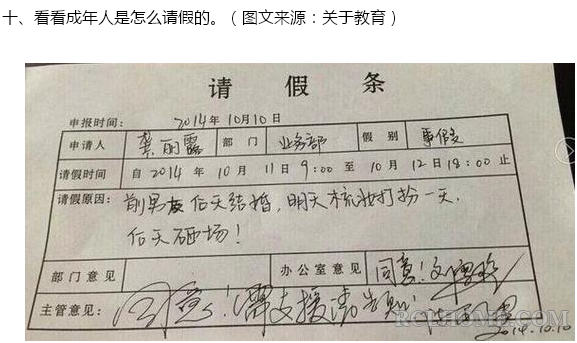 十、看看成年人是怎么请假的。（图文来源：关于教育）
请 假 条
申报时间： 2014年10月10日
申请人 龚丽露 部门 业务部 假别 事假
请假时间 自2014年10月11日9:00至10月12日18:00止
请假原因： 前男友后天结婚，明天梳妆打扮一天，
后天砸场！
部门意见 办公室意见 同意！
主管意见： 同意！需支援请告知！
2014.10.10